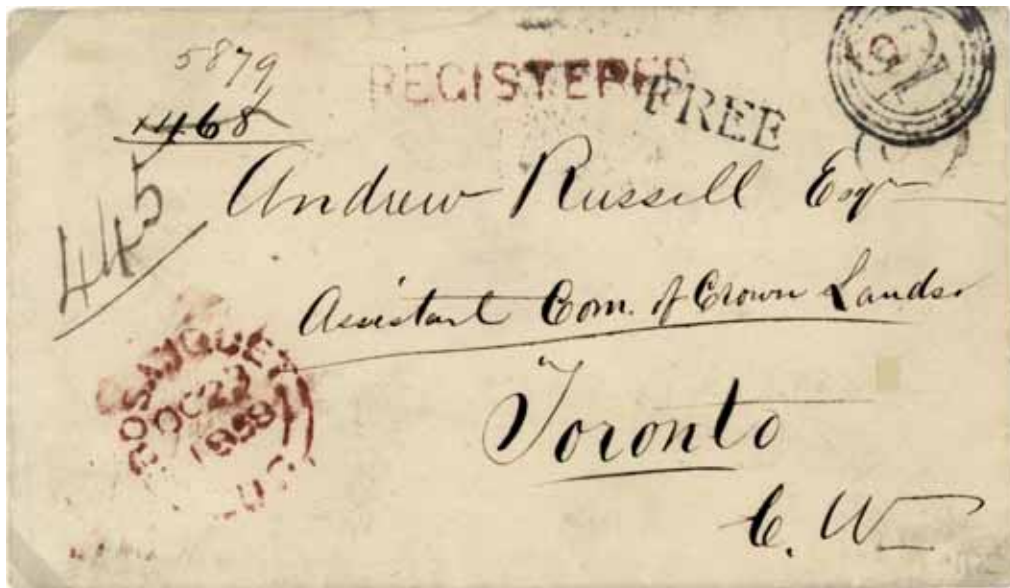 5879
1468
REGISTERED
FREE
445
Andrew Russell Esqr
Assistant Com. of Crown Lands
Toronto
C. W
BOSANQUET
OC 22
1858
U.C.